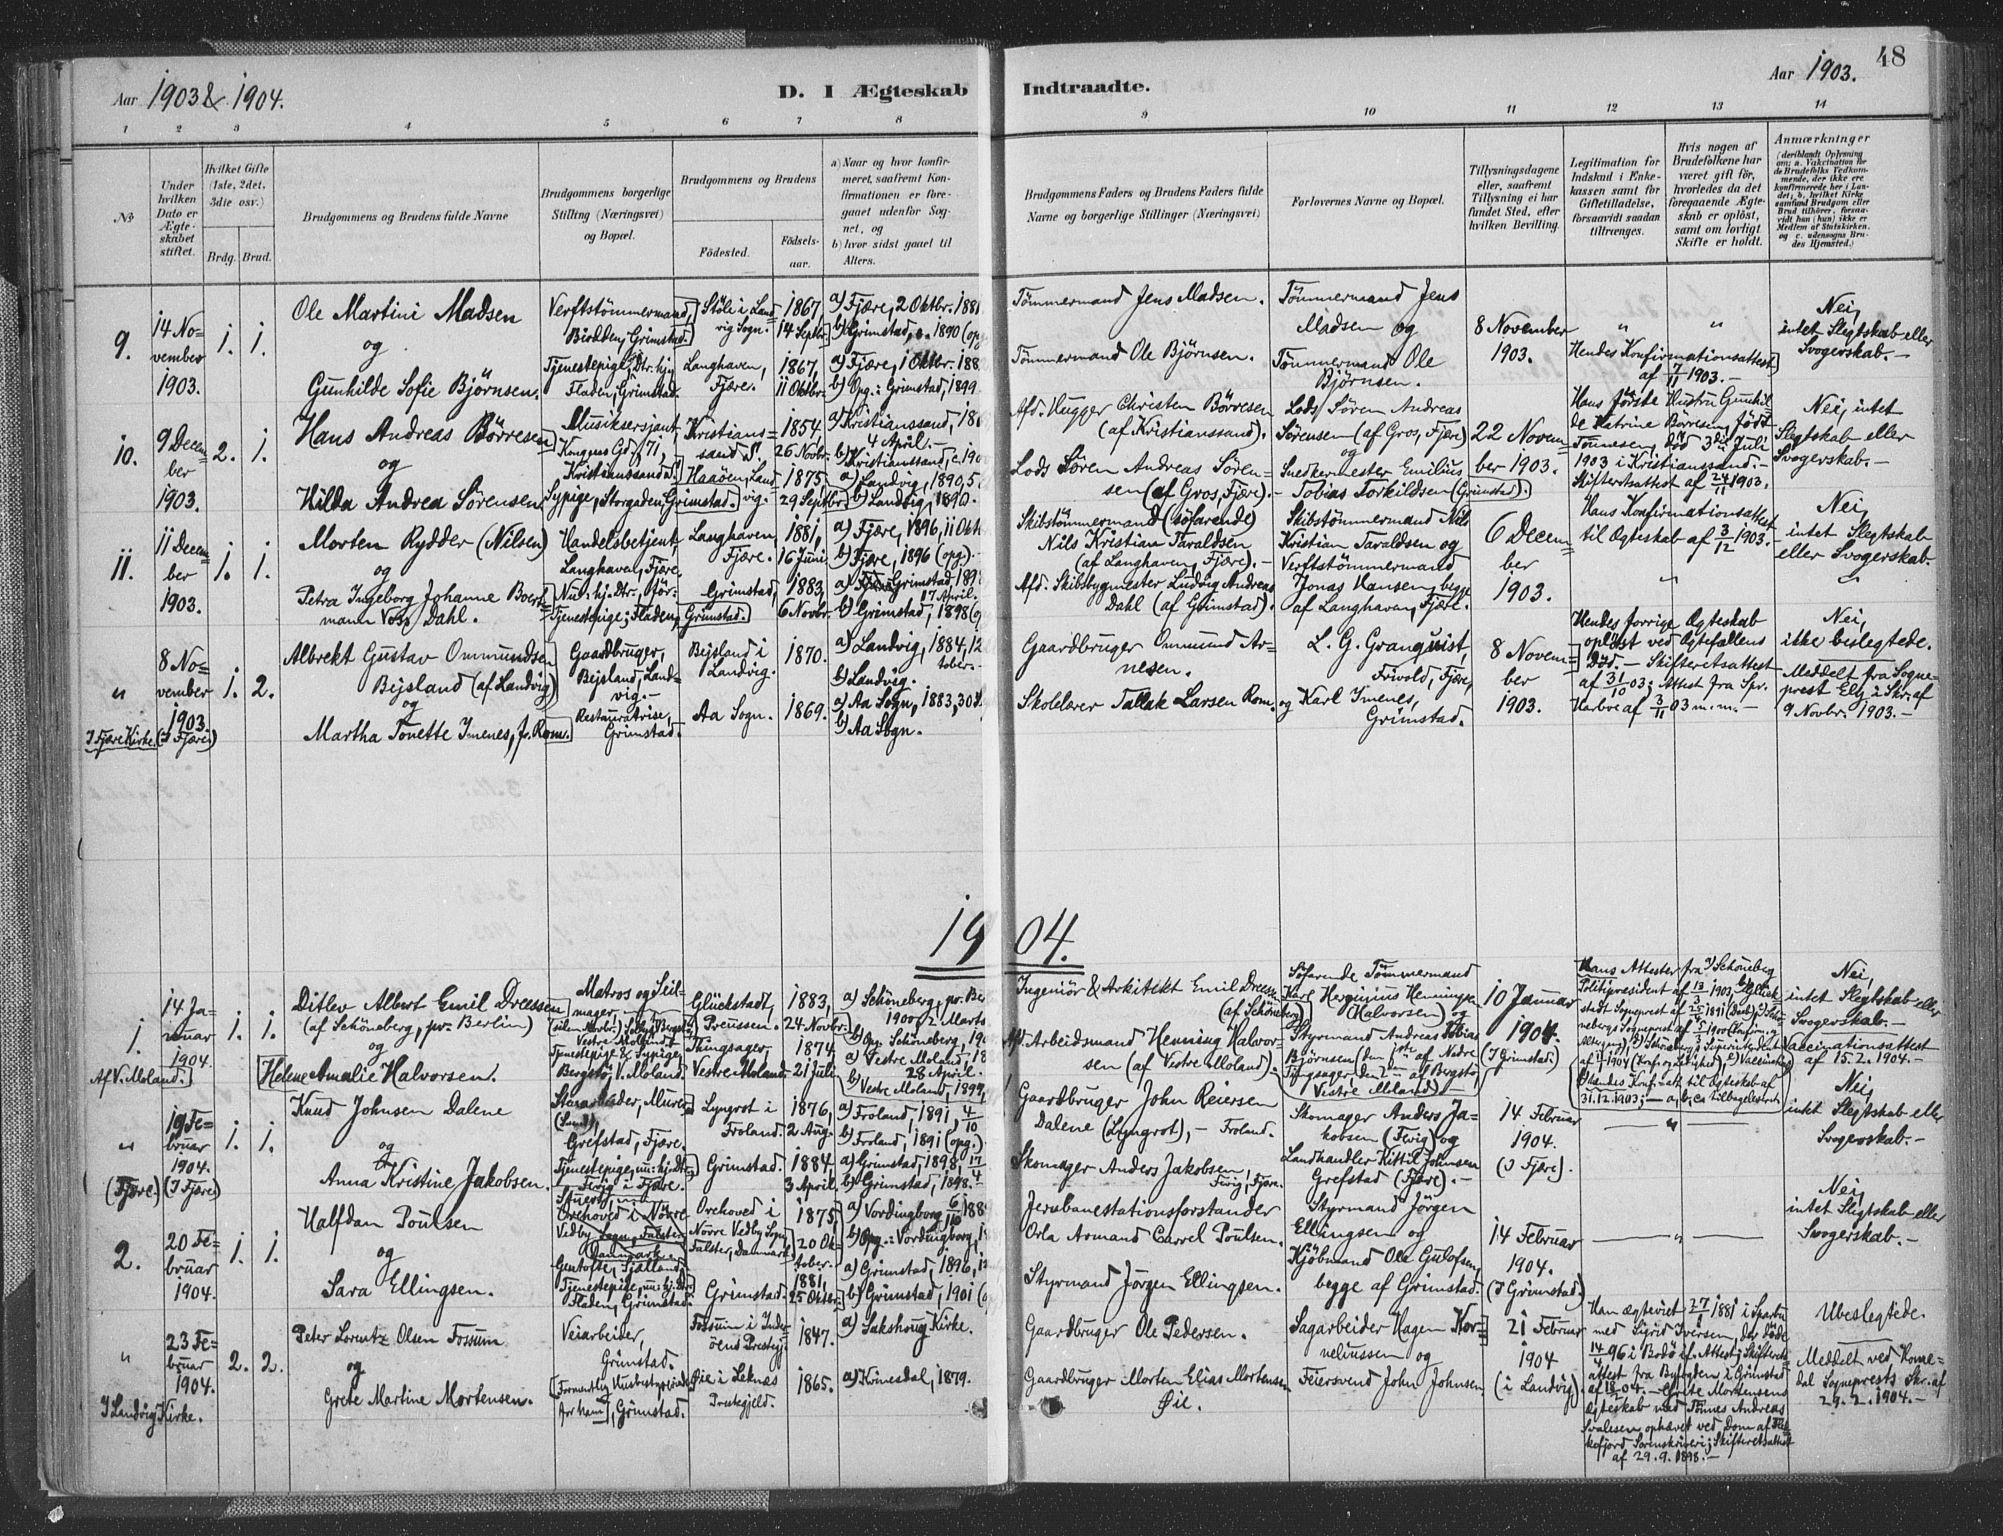 Aar 1903 & 1904.
D. I Ægteskab Indtraadte.
Aar 1903.
48
1 2 3 4 5 6 7 8 9 10 11 12 13 14
No
Under hvilken Dato er Ægteskabet stiftet.
Hvilket Gifte (1ste, 2det, 3die osv.)
Brdg. Brud.
Brudgommens og Brudens fulde Navne
Brudgommens borgerlige Stilling (Næringsvei) og Bopæl.
Brudgommens og Brudens
Födested.
Födselsaar.
a) Naar og hvor konfirmeret, saafremt Konfirmationen er foregaaet udenfor Sognet, og
b) hvor sidst gaaet til Alters.
Brudgommens Faders og Brudens Faders fulde Navne og borgerlige Stillinger (Næringsvei)
Forlovernes Navne og Bopæl.
Tillysningsdagene eller, saafremt Tillysning ei har fundet Sted, efter hvilken Bevilling.
Legitimation for Indskud i Enkekassen samt for Giftetilladelse, forsaavidt saadan tiltrænges.
Hvis nogen af Brudefolkene har været gift för, hvorledes da det foregaaende Ægteskab er oplöst, samt om lovligt Skifte er holdt.
Anmærkninger
(deriblandt Oplysning om: a. Vakcination for de Brudefolks Vedkommende, der ikke ere konfirmerede her i Landet, b. hvilket Kirkesamfund Brudgom eller Brud tilhörer, forsaavidt han (hun) ikke er Medlem af Statskirken, og c. udensogns Brudes Hjemsted.)
9.
14 November 1903.
1. 1.
Ole Martini Madsen
og
Gunhilde Sofie Björnsen.
Verftstömmermand,
Biodden, Grimstad.
Tjenestepige, Dtr. hj.,
Fladen, Grimstad.
Störe i Landvig Sogn.
Langhaven, Fjære.
1867, 14 Septbr.
1867, 11 Oktbr.
a) Fjære, 2 Oktbr. 1881
b) Grimstad, c. 1890 (opg
a) Fjære, 1 Oktbr. 188
b) Opg.: Grimstad, 1899.
Tömmermand Jens Madsen.
Tömmermand Ole Björnsen.
Tömmermand Jens Madsen og
Tömmermand Ole Björnsen.
8 November 1903.
" "
Hendes Konfirmationsattest af 7/11 1903. -
Nei, intet Slegtskab eller Svogerskab. -
10.
9 December 1903.
2. 1.
Hans Andreas Börresen
og
Hilda Andrea Sörensen
Musiksersjant,
Kongens Gd. 71,
Kristianssand S.
Sypige, Storgaden, Grimstad.
Kristianssand S.
Haaöen, Landvig.
1854, 26 Novbr.
1875, 29 Septbr.
a) Kristianssand, 186
4 April. -
b) Kristianssand, c. 190
a) Landvig, 1890, 5
b) Landvig, 1890.
Afd. Hugger Christen Börresen (af Kristianssand).
Lods Sören Andreas Sörensen (af Gros, Fjære). -
Lods Sören Andreas Sörensen (af Gros, Fjære)
og
Snedkermester Emilius Tobias Torkildsen (Grimstad).
22 November 1903.
Hans förste Hustru Gunhilde Katrine Börresen, födt Tönnesen, död 3die Juli 1903 i Kristianssand. - Skifteretsattest af 24/11 1903.
Nei, intet Slegtskab eller Svogerskab. -
11.
11 December 1903.
1. 1.
Morten Rydder (Nilsen)
og
Petra Ingeborg Johanne Boethmann Voss Dahl.
Handelsbetjent,
Langhaven, Fjære.
Nu: hj. Dtr., för: Tjenestepige; Fladen, Grimstad.
Langhaven, Fjære.
Grimstad,
1881, 16 Juni
1883, 6 Novbr.
a) Fjære, 1896, 11 Okt
b) Fjære, 1896 (opg.).
a) Grimstad, 1898
17 April.
b) Grimstad, 1898 (o
Skibstömmermand (söfarende) Nils Kristian Taraldsen (af Langhaven, Fjære). -
Afd. Skibsbygmester Ludvig Andreas Dahl (af Grimstad).
Skibstömmermand Nils Kristian Taraldsen og
Verftstömmermand Jonas Hansen, begge af Langhaven, Fjære.
6 December 1903.
Hans Konfirmationsattest til Ægteskab af 3/12 1903. -
"
Nei, intet Slegtskab eller Svogerskab.
"
"
8 November 1903.
(I Fjære)
I Fjære Kirke.
1. 2.
Albrekt Gustav Ommundsen Bejsland (af Landvig)
og
Martha Tonette Imenes, f. Rom.
Gaardbruger,
Bejsland, Landvig. -
Restauratrise,
Grimstad.
Bejsland i Landvig.
Aa Sogn.
1870.
1869.
a) Landvig, 1884, 12
tober. -
b) Landvig.
a) Aa Sogn, 1883, 30 S.
b) Aa Sogn.
Gaardbruger Ommund Arnesen.
Skolelærer Tallak Larsen Rom.
L. G. Granquist, Frivold, Fjære,
og Karl Imenes, Grimstad.
8 November 1903.
Hendes forrige Ægteskab oplöst ved Ægtefællens Död. - Skifteretsattest af 31/10 03; Attest fra Spr. Harboe af 3/11 03 m.m. -
Nei, ikke beslegtede.
Meddelt fra Sogneprest Elg i Skr. af 9 Novbr. 1903. -
1904.
1.
14 Januar 1904
Af V. Moland.
1. 1.
Ditlev Albert Emil Dreesen
(af Schöneberg, pr. Berlin)
og
Helene Amalie Halvorsen.
Matros og Seilmager,
Tjenestepige & Sypige,
Bergstö, V. Moland.
Glückstadt, Preussen.
Thingsager, Vestre Moland
1883, 24 Novbr.
1874, 21 Juli
a) Schöneberg, pr. Ber
1900, 2 Marts
b) Opg. Schöneberg, 190
a) Vestre Moland, 18
28 April.
b) Vestre Moland, 1899,
Ingeniör & Arkitekt Emil Dreesen (af Schöneberg)
Afd. Arbeidsmand Henning Halvorsen (af Vestre Moland).
Söfarende Tömmermand Karl Herginius Henningsen (Halvorsen) og
Styrmand Andreas Tobias Björnsen, den 1ste af Nedre Tingsager, den 2den af Bergstö, Vestre Moland. -
10 Januar 1904.
(I Grimstad.)
Hans Attester fra 1) Schöneberg Politipresident af 1903,
Hendes Konf.-att. til Ægteskab af 31.12.1903; - a, b, c tilbageleveret
Nei, intet Slegtskab eller Svogerskab. -
Vaccinationsattest af 15.2.1904. -
"
19 Februar 1904.
(Fjære) (I Fjære)
1. 1.
Knud Johnsen Dalene
og
Anna Kristine Jakobsen.
Stenarbeider, Murer
Grefstad, Fjære.
Tjenestepige, nu: hj. Dtr.
Fevig i Fjære.
Lyngrot i Froland.
Grimstad.
1876, 2 Aug.
1884, 3 April.
a) Froland, 1891, 4/10
b) Froland, 1891 (opg.)
a) Grimstad, 1898, 17/4
b) Grimstad, 1898. -
Gaardbruger John Reiersen Dalene (Lyngrot), - Froland.
Skomager Anders Jakobsen, Fevig, Fjære.
Skomager Anders Jakobsen (Fevig) og
Landhandler Kittil Johnsen Grefstad (Fjære). -
14 Februar 1904.
(I Fjære).
"
Nei, intet Slegtskab eller Svogerskab. -
2.
20 Februar 1904.
1. 1.
Halfdan Poulsen
og
Sara Ellingsen.
Stuert,
Orehoved i Nörre Vedby Sogn, Falster, Danmark
Gentofte, Sjælland.
Tjenestepige, nu: hj. Dtr.
Fladen, Grimstad.
Orehoved i Nörre Vedby Sogn, Falster, Danmark
Grimstad.
1875, 20 Oktober.
1881, 25 Oktbr.
a) Vordingborg 6/10 188
b) Opg.: Vordingborg, 1
a) Grimstad, 1896, 1
b) Grimstad, 1901 (
Jernbanestationsforstander Orla Armand Carrel Poulsen.
Styrmand Jörgen Ellingsen.
Styrmand Jörgen Ellingsen og
Kjöbmand Ole Gulofsen, begge af Grimstad.
14 Februar 1904.
(I Grimstad.)
"
Nei, intet Slegtskab eller Svogerskab. -
"
23 Februar 1904.
I Landvig Kirke.
2. 2.
Peter Lorentz Olsen Fossum
og
Grete Martine Mortensen.
Veiarbeider,
Grimstad.
Formentlig Husbestyrerinde
for ham, Grimstad.
Fossum i Inderöens Prestegj.
Öie i Leknes Prestegjeld.
1847.
1865.
a) Sakshaug Kirke.
a) Kvinesdal, 1879.
Gaardbruger Ole Pedersen.
Gaardbruger Morten Elias Mortensen Öie.
Sagarbeider Hagen Korneliussen og
Feiersvend John Johnsen
21 Februar 1904
(i Landvig).
Han ægteviet 27/1 1881 i Sparbu med Sigrid Iversen, der döde 14/4 96 i Bodö ifl. Attest; Skifteretsattest fra Byfogden i Grimstad af 18/2 04. - Grete Mortensens Ægteskab med Tönnes Andreas Svalesen ophævet ved Dom af Flekkefjord Sorenskriveri; Skifteretsattest af 29.9.1898. -
Ubeslegtede.
Meddelt ved Homedal Sogneprests Skr. af 29.2.1904. -